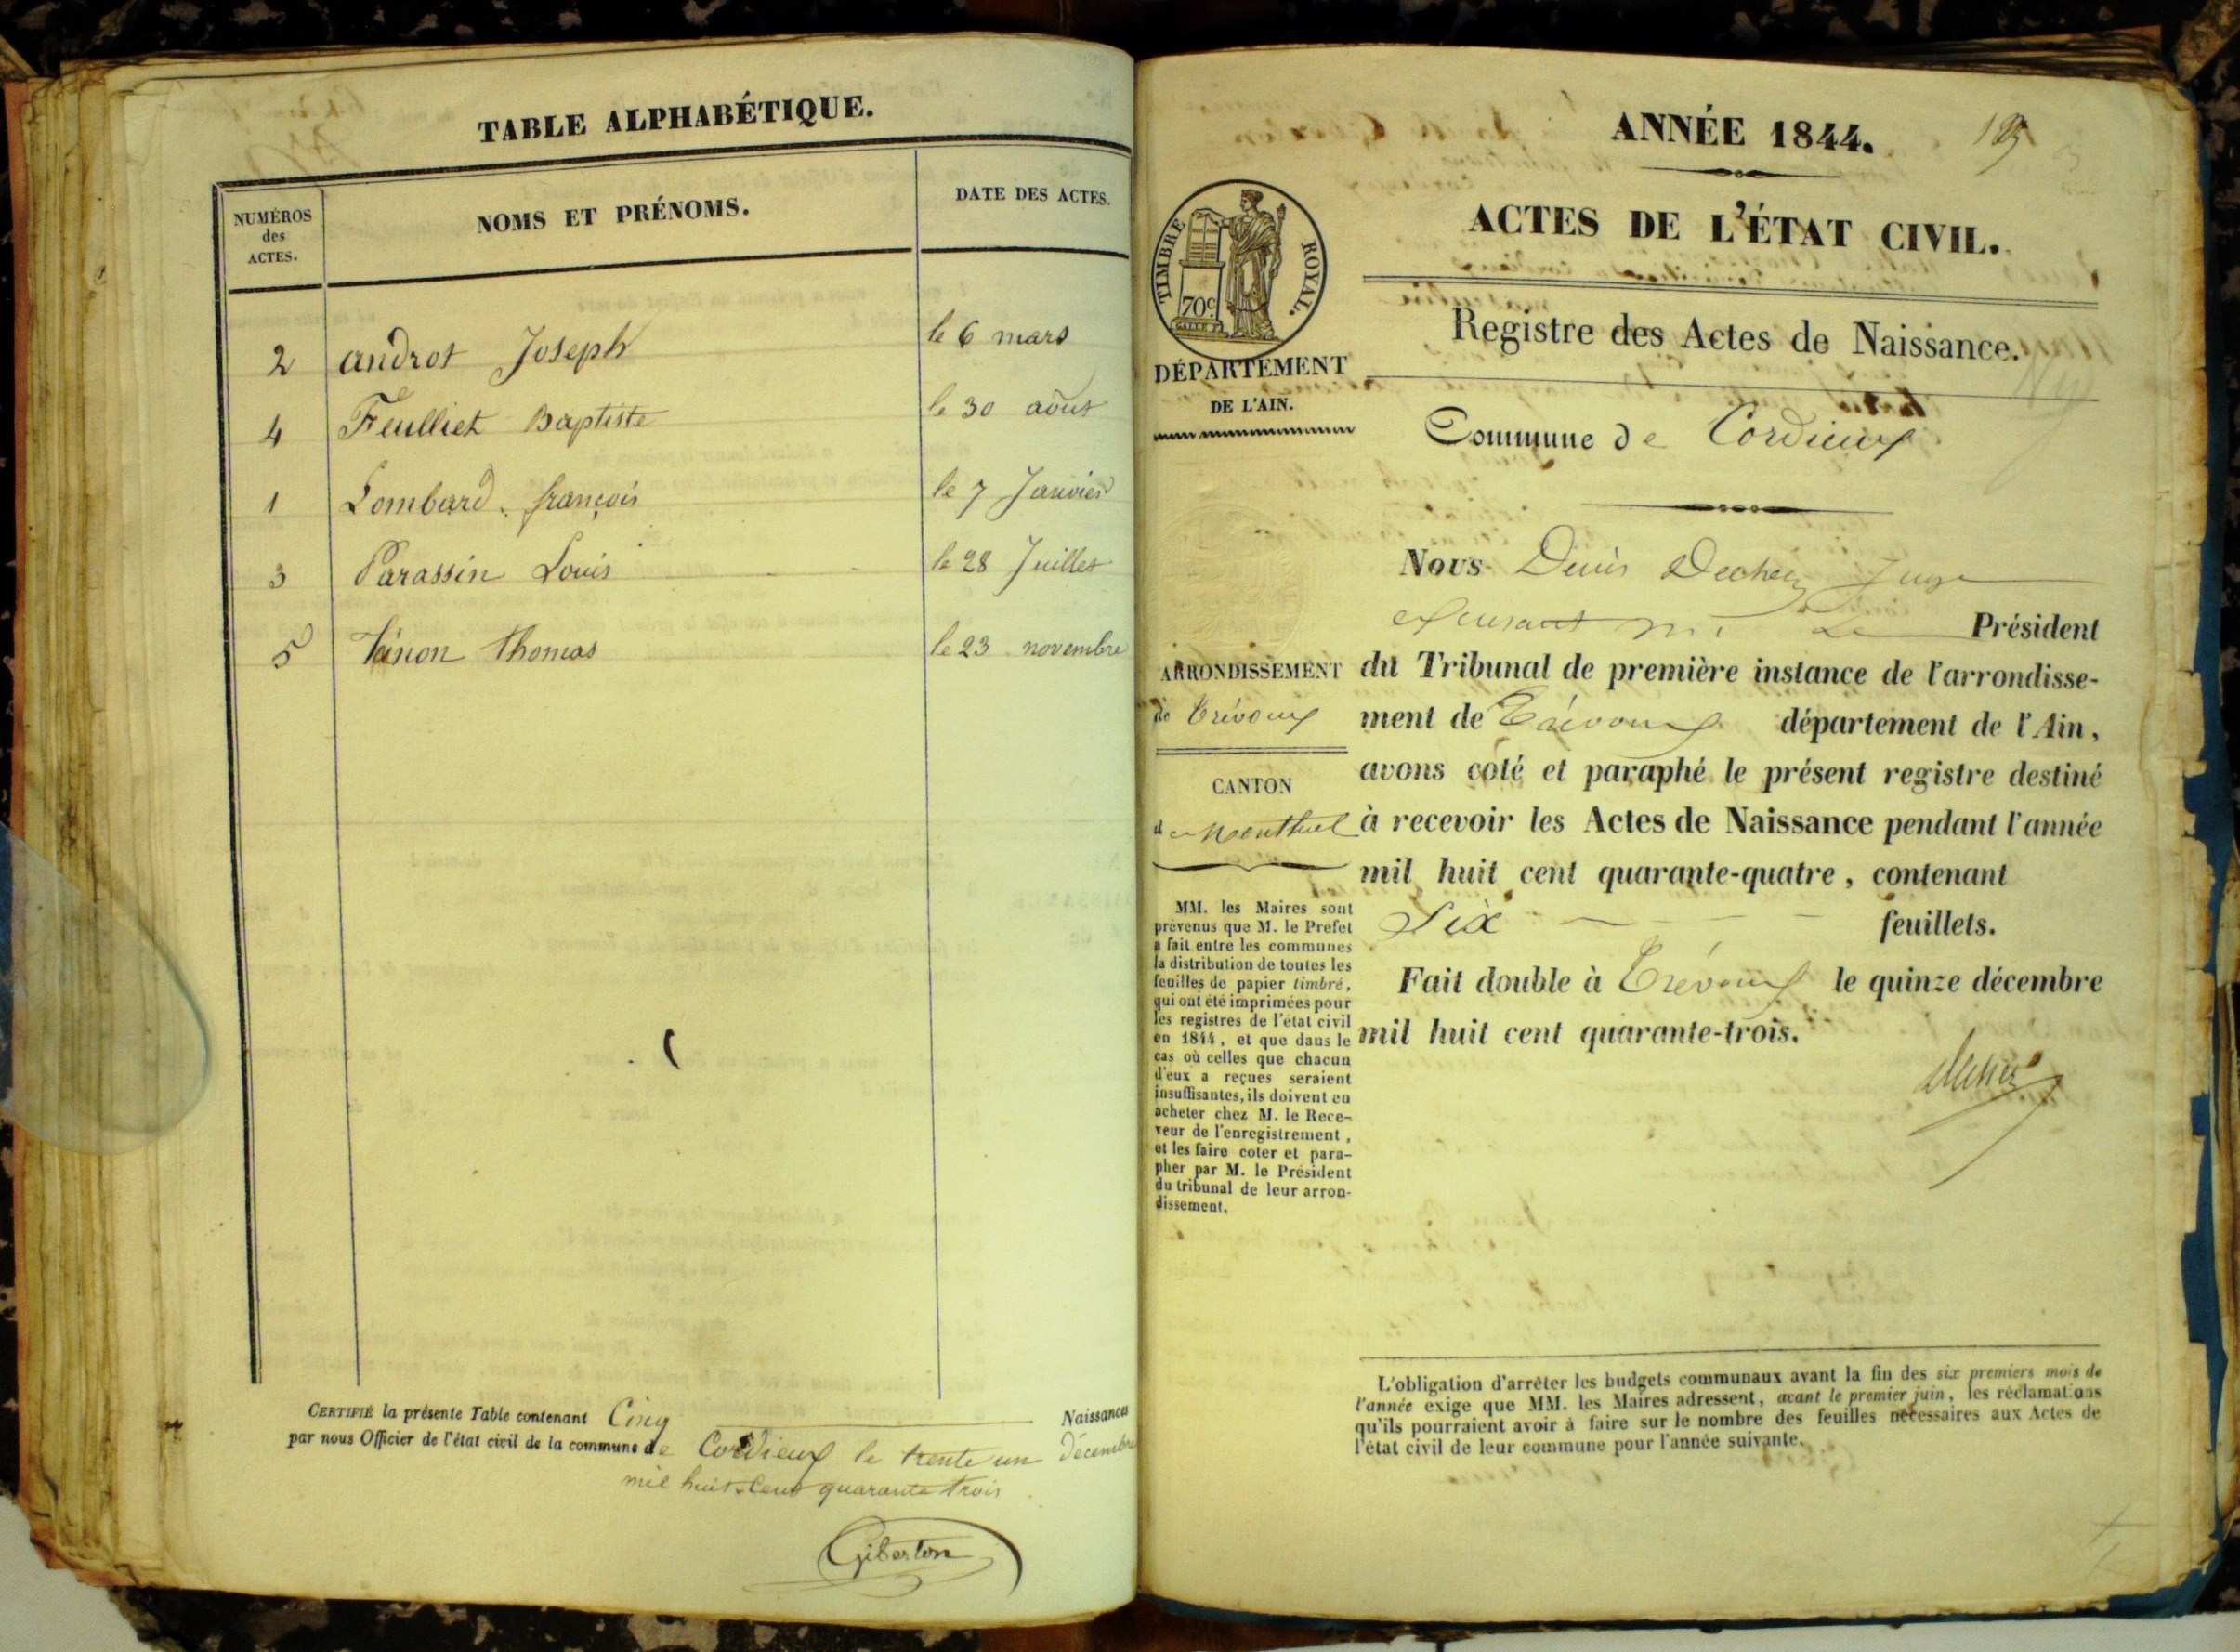 TABLE ALPHABÉTIQUE.
NUMÉROS
des
ACTES.
NOMS ET PRÉNOMS.
DATE DES ACTES.
2 androt Joseph le 6 mars
4 Feulliet Baptiste le 30 août
1 Lombard françois le 7 Janvier
3 Parassin Louis le 28 Juillet
5 Thomas le 23 novembre
CERTIFIÉ la présente Table contenant Cinq Naissances
par nous Officier de l'état civil de la commune de Cordieux le trente un décembre
mil huit cent quarante trois
Giberton
ANNÉE 1844.
ACTES DE L'ÉTAT CIVIL.
TIMBRE ROYAL.
70c
Registre des Actes de Naissance.
DÉPARTEMENT
DE L'AIN.
Commune de Cordieux
Nous Denis Juge
Président
ARRONDISSEMENT
de Trévoux
CANTON
de Montluel
MM. les Maires sont
prévenus que M. le Prefet
a fait entre les communes
la distribution de toutes les
feuilles de papier timbré,
qui ont été imprimées pour
les registres de l'état civil
en 1844, et que dans le
cas où celles que chacun
d'eux a reçues seraient
insuffisantes, ils doivent en
acheter chez M. le Rece-
veur de l'enregistrement,
et les faire coter et para-
pher par M. le Président
du tribunal de leur arron-
dissement.
du Tribunal de première instance de l'arrondisse-
ment de Trévoux département de l'Ain,
avons coté et paraphé le présent registre destiné
à recevoir les Actes de Naissance pendant l'année
mil huit cent quarante-quatre, contenant
Six feuillets.
Fait double à Trévoux le quinze décembre
mil huit cent quarante-trois.
L'obligation d'arrêter les budgets communaux avant la fin des six premiers mois de
l'année exige que MM. les Maires adressent, avant le premier juin, les réclamations
qu'ils pourraient avoir à faire sur le nombre des feuilles nécessaires aux Actes de
l'état civil de leur commune pour l'année suivante.